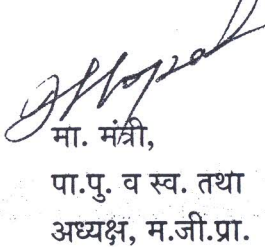 मा. मंत्री,
पा.पु. व स्व. तथा
अध्यक्ष, म.जी.प्रा.